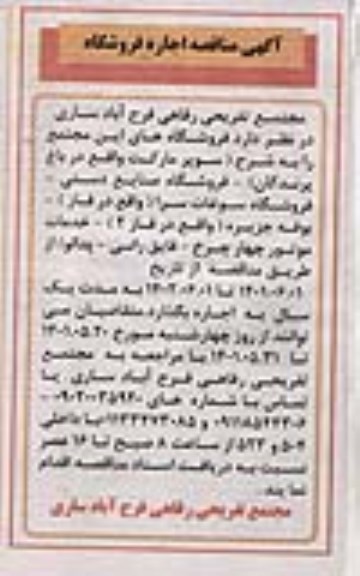 آگهی مناقصه اجاره فروشگاه
مجتمع تفریحی رفاهی فرح آباد ساری
در نظر دارد فروشگاه های این مجتمع
را به شرح ( سوپر مارکت واقع در باغ
پرندگان) - فروشگاه صنایع دستی -
فروشگاه سوغات سرا ( واقع در فاز ) -
بوفه جزیره ( واقع در فاز ۲ ) - خدمات
موتور چهار چرخ - قایق رانی - پدالو) از
طریق مناقصه از تاریخ
۱۴۰۱.۰۶.۰۱ تا ۱۴۰۲.۰۶.۰۱ به مدت یک
سال به اجاره بگذارد متقاضیان می
توانند از روز چهارشنبه مورخ
تا ۱۴۰۱.۰۵.۳۱ با مراجعه به مجتمع
تفریحی رفاهی فرح آباد ساری یا
تماس با شماره های
و با داخلی
از ساعت ۸ صبح تا ۱۶ عصر
نسبت به دریافت اسناد مناقصه اقدام
نمایند.
مجتمع تفریحی رفاهی فرح آباد ساری